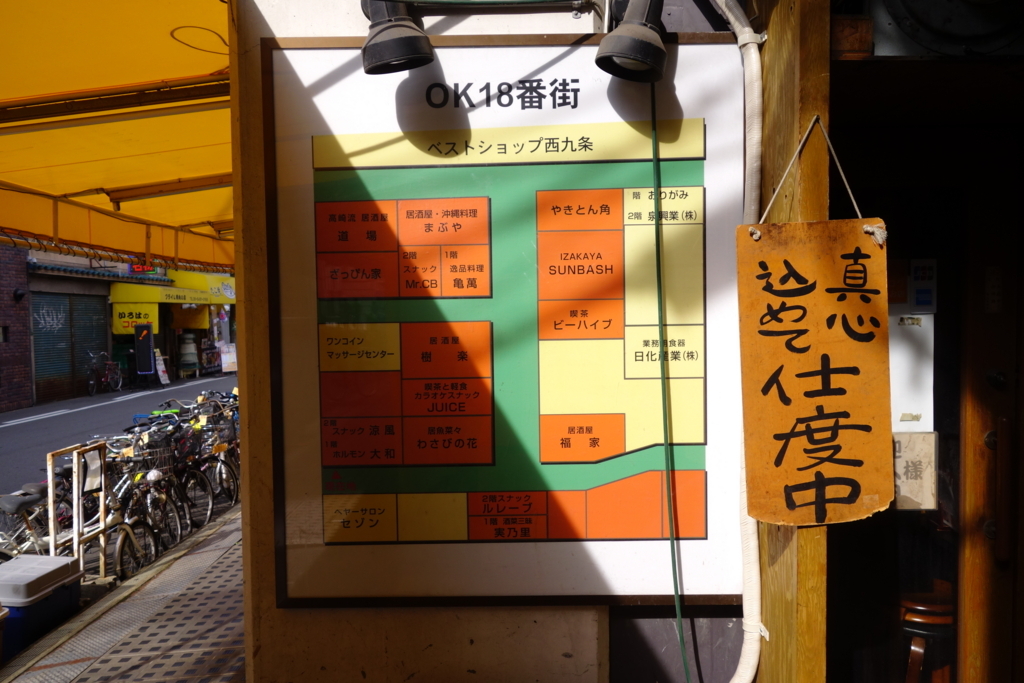 OK18番街
ベストショップ西九条
居酒屋
道場
居酒屋・沖縄料理
まぶや
さっぴん家
2階
スナック
Mr.CB
1階
逸品料理
亀萬
やきとん角
階 おりがみ
2階 泉興業(株)
IZAKAYA
SUNBASH
喫茶
ビーハイブ
ワンコイン
マッサージセンター
居酒屋
樹楽
業務用食器
日化産業(株)
喫茶と軽食
カラオケスナック
JUICE
スナック 涼風
ホルモン 大和
わさびの花
居酒屋
福家
ヘヤーサロン
セゾン
2階スナック
ルレーブ
1階
実乃里
真心
込めて
仕度中
様
いろはの